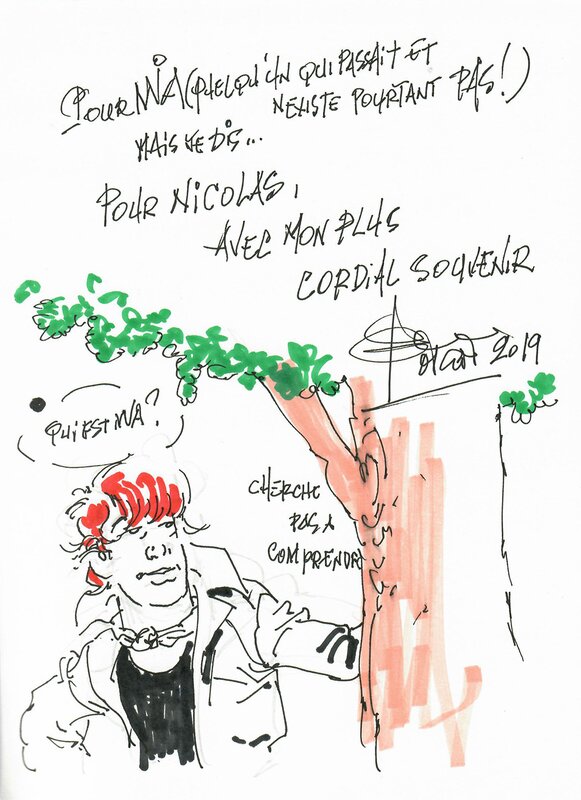 POUR MIA (QUELQU'UN QUI PASSAIT ET
N'EXISTE POURTANT PAS!)
MAIS JE DIS...
POUR NICOLAS,
AVEC MON PLUS
CORDIAL SOUVENIR
2019
QUI EST MIA?
CHERCHE
PAS À
COMPRENDRE